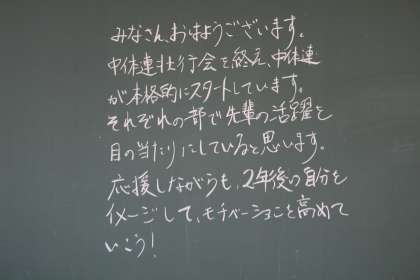 みなさん、おはようございます。
中体連壮行会を終え、中体連
が本格的にスタートしています。
それぞれの部で先輩の活躍を
目の当たりにしていると思います。
応援しながらも、2年後の自分を
イメージして、モチベーションを高めて
いこう!